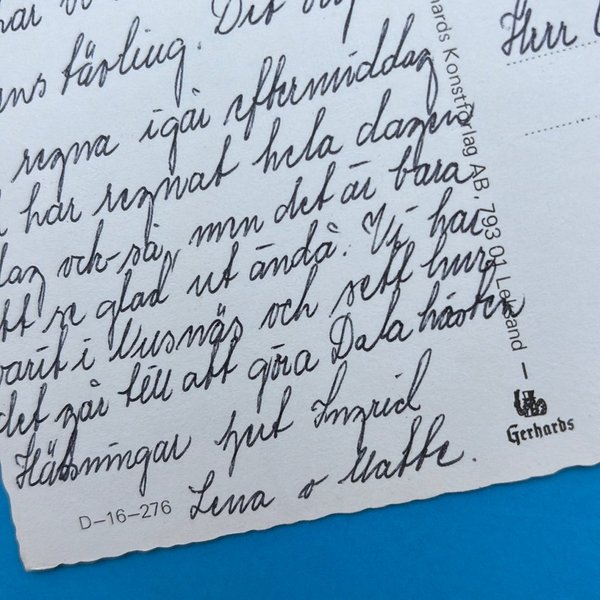 ns tävling. Det
regna igår eftermiddag
har regnat hela dagen
dag och-så, men det är bara
tt se glad ut ändå. Vi har
varit i Nusnäs och sett hur
det går till att göra Dala hästen
Hälsningar Gut Ingrid
Lena o Matte.
D-16-276
Herr
hards Konstförlag AB, 793 01 Leksand –
Gerhards